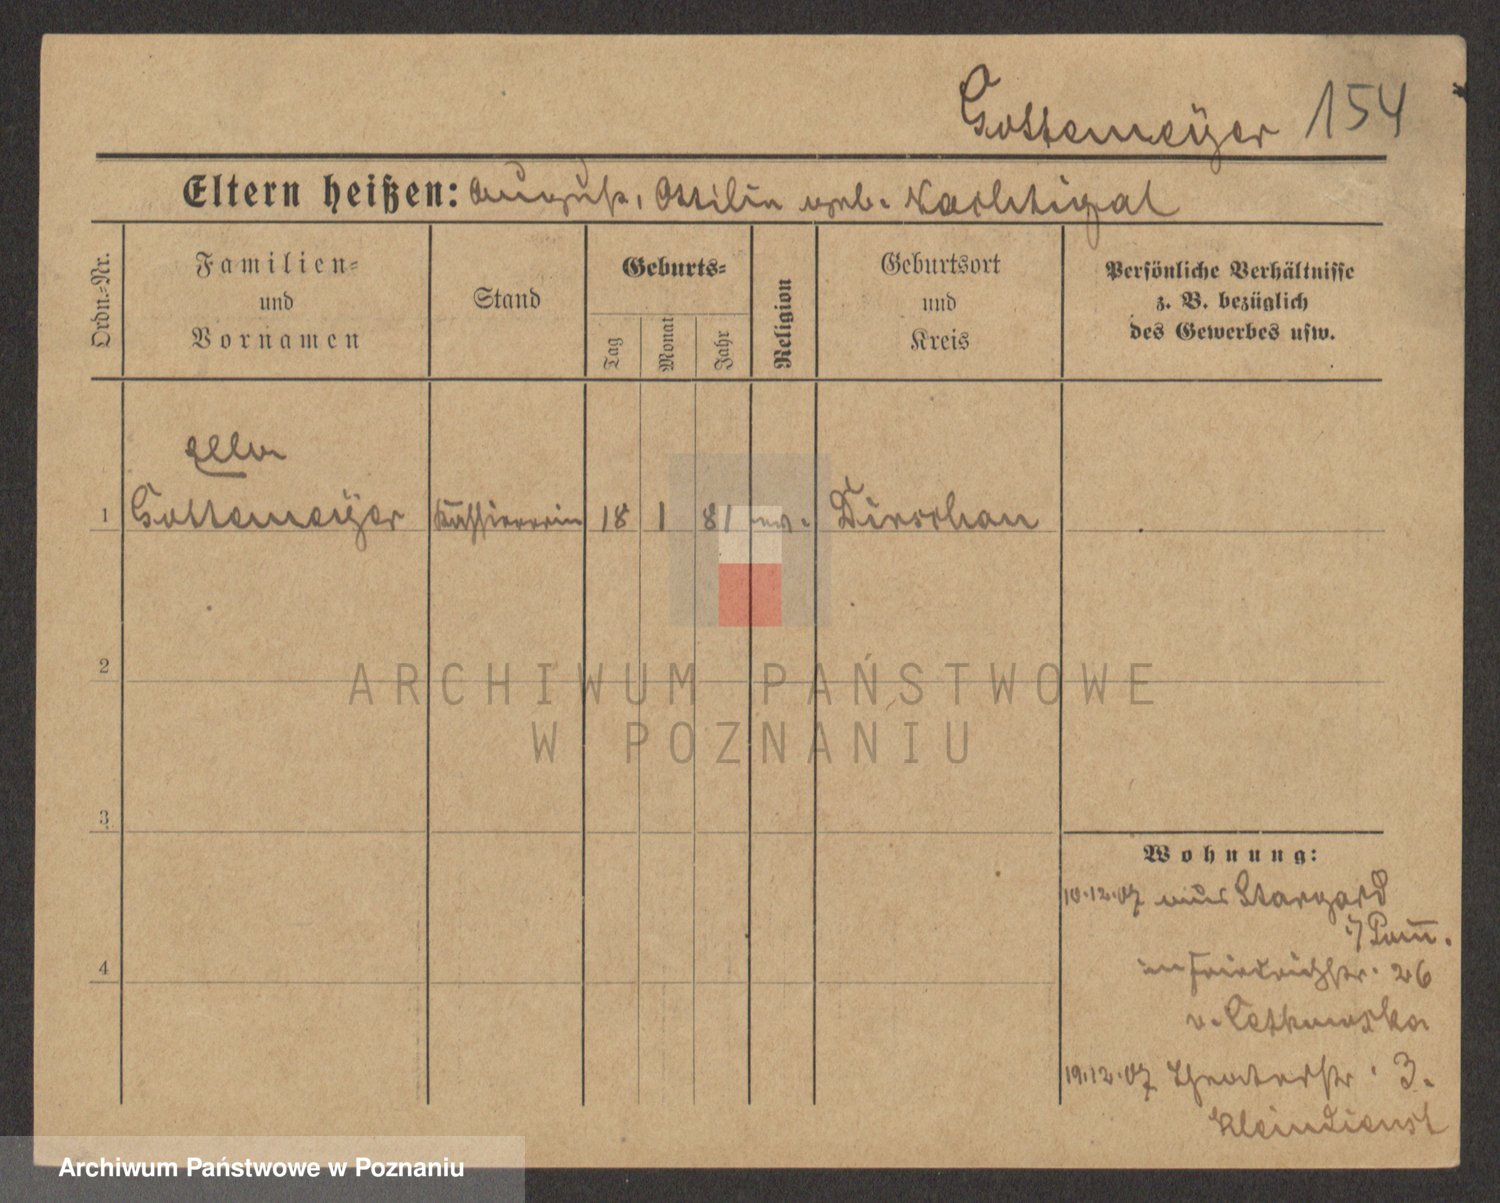 Gottemeÿer 154
Eltern heißen: August, Ottilie geb. Nachtigal
Ordn.-Nr.
Familien-
und
Vornamen
Stand
Geburts-
Tag
Monat
Jahr
Religion
Geburtsort
und
Kreis
Persönliche Verhältnisse
z. B. bezüglich
des Gewerbes usw.
Ella
1 Gottemeÿer Kassiererin 18 1 81 ev. Dirschau
2
ARCHIWUM PAŃSTWOWE
W POZNANIU
3
Wohnung:
10.12.07 aus Stargard
i/Pom̅.
in Friedrichstr. 26
4
v.
19.12.07 Theaterstr. 3.
Kleindienst
Archiwum Państwowe w Poznaniu